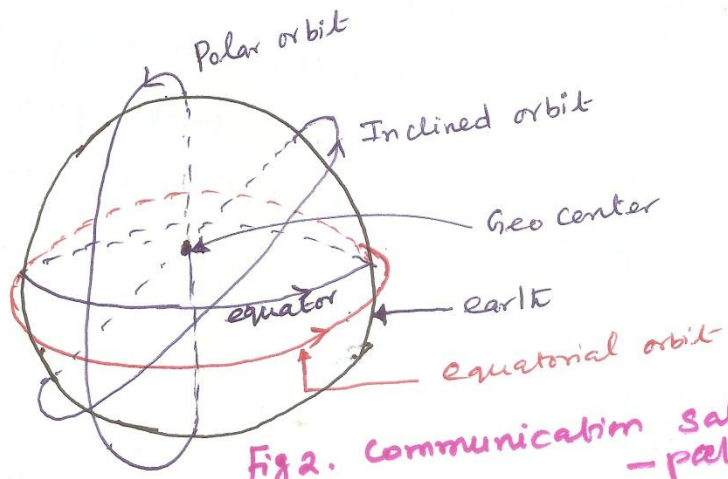 Polar orbit
Inclined orbit
Geo center
equator
earth
equatorial orbit
Fig 2. Communication